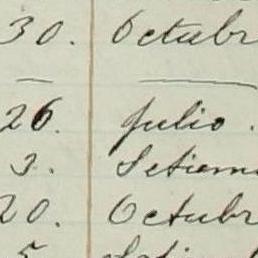 30. Octubr
26. Julio.
3. Setiem
20. Octubr
5.